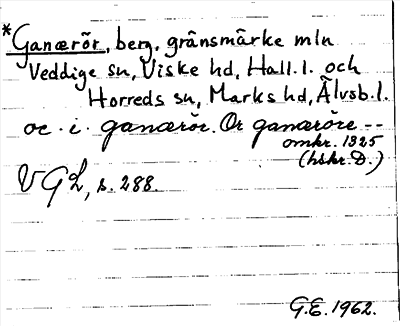 *Ganærör, berg, gränsmärke mln
Veddige sn, Viske hd, Hall. l. och
Horreds sn, Marks hd, Älvsb. l.
oc · i · ganærör. Or ganæröre --
omkr. 1325
(hskr. D.)
VGL, s. 288.
G.E. 1962.